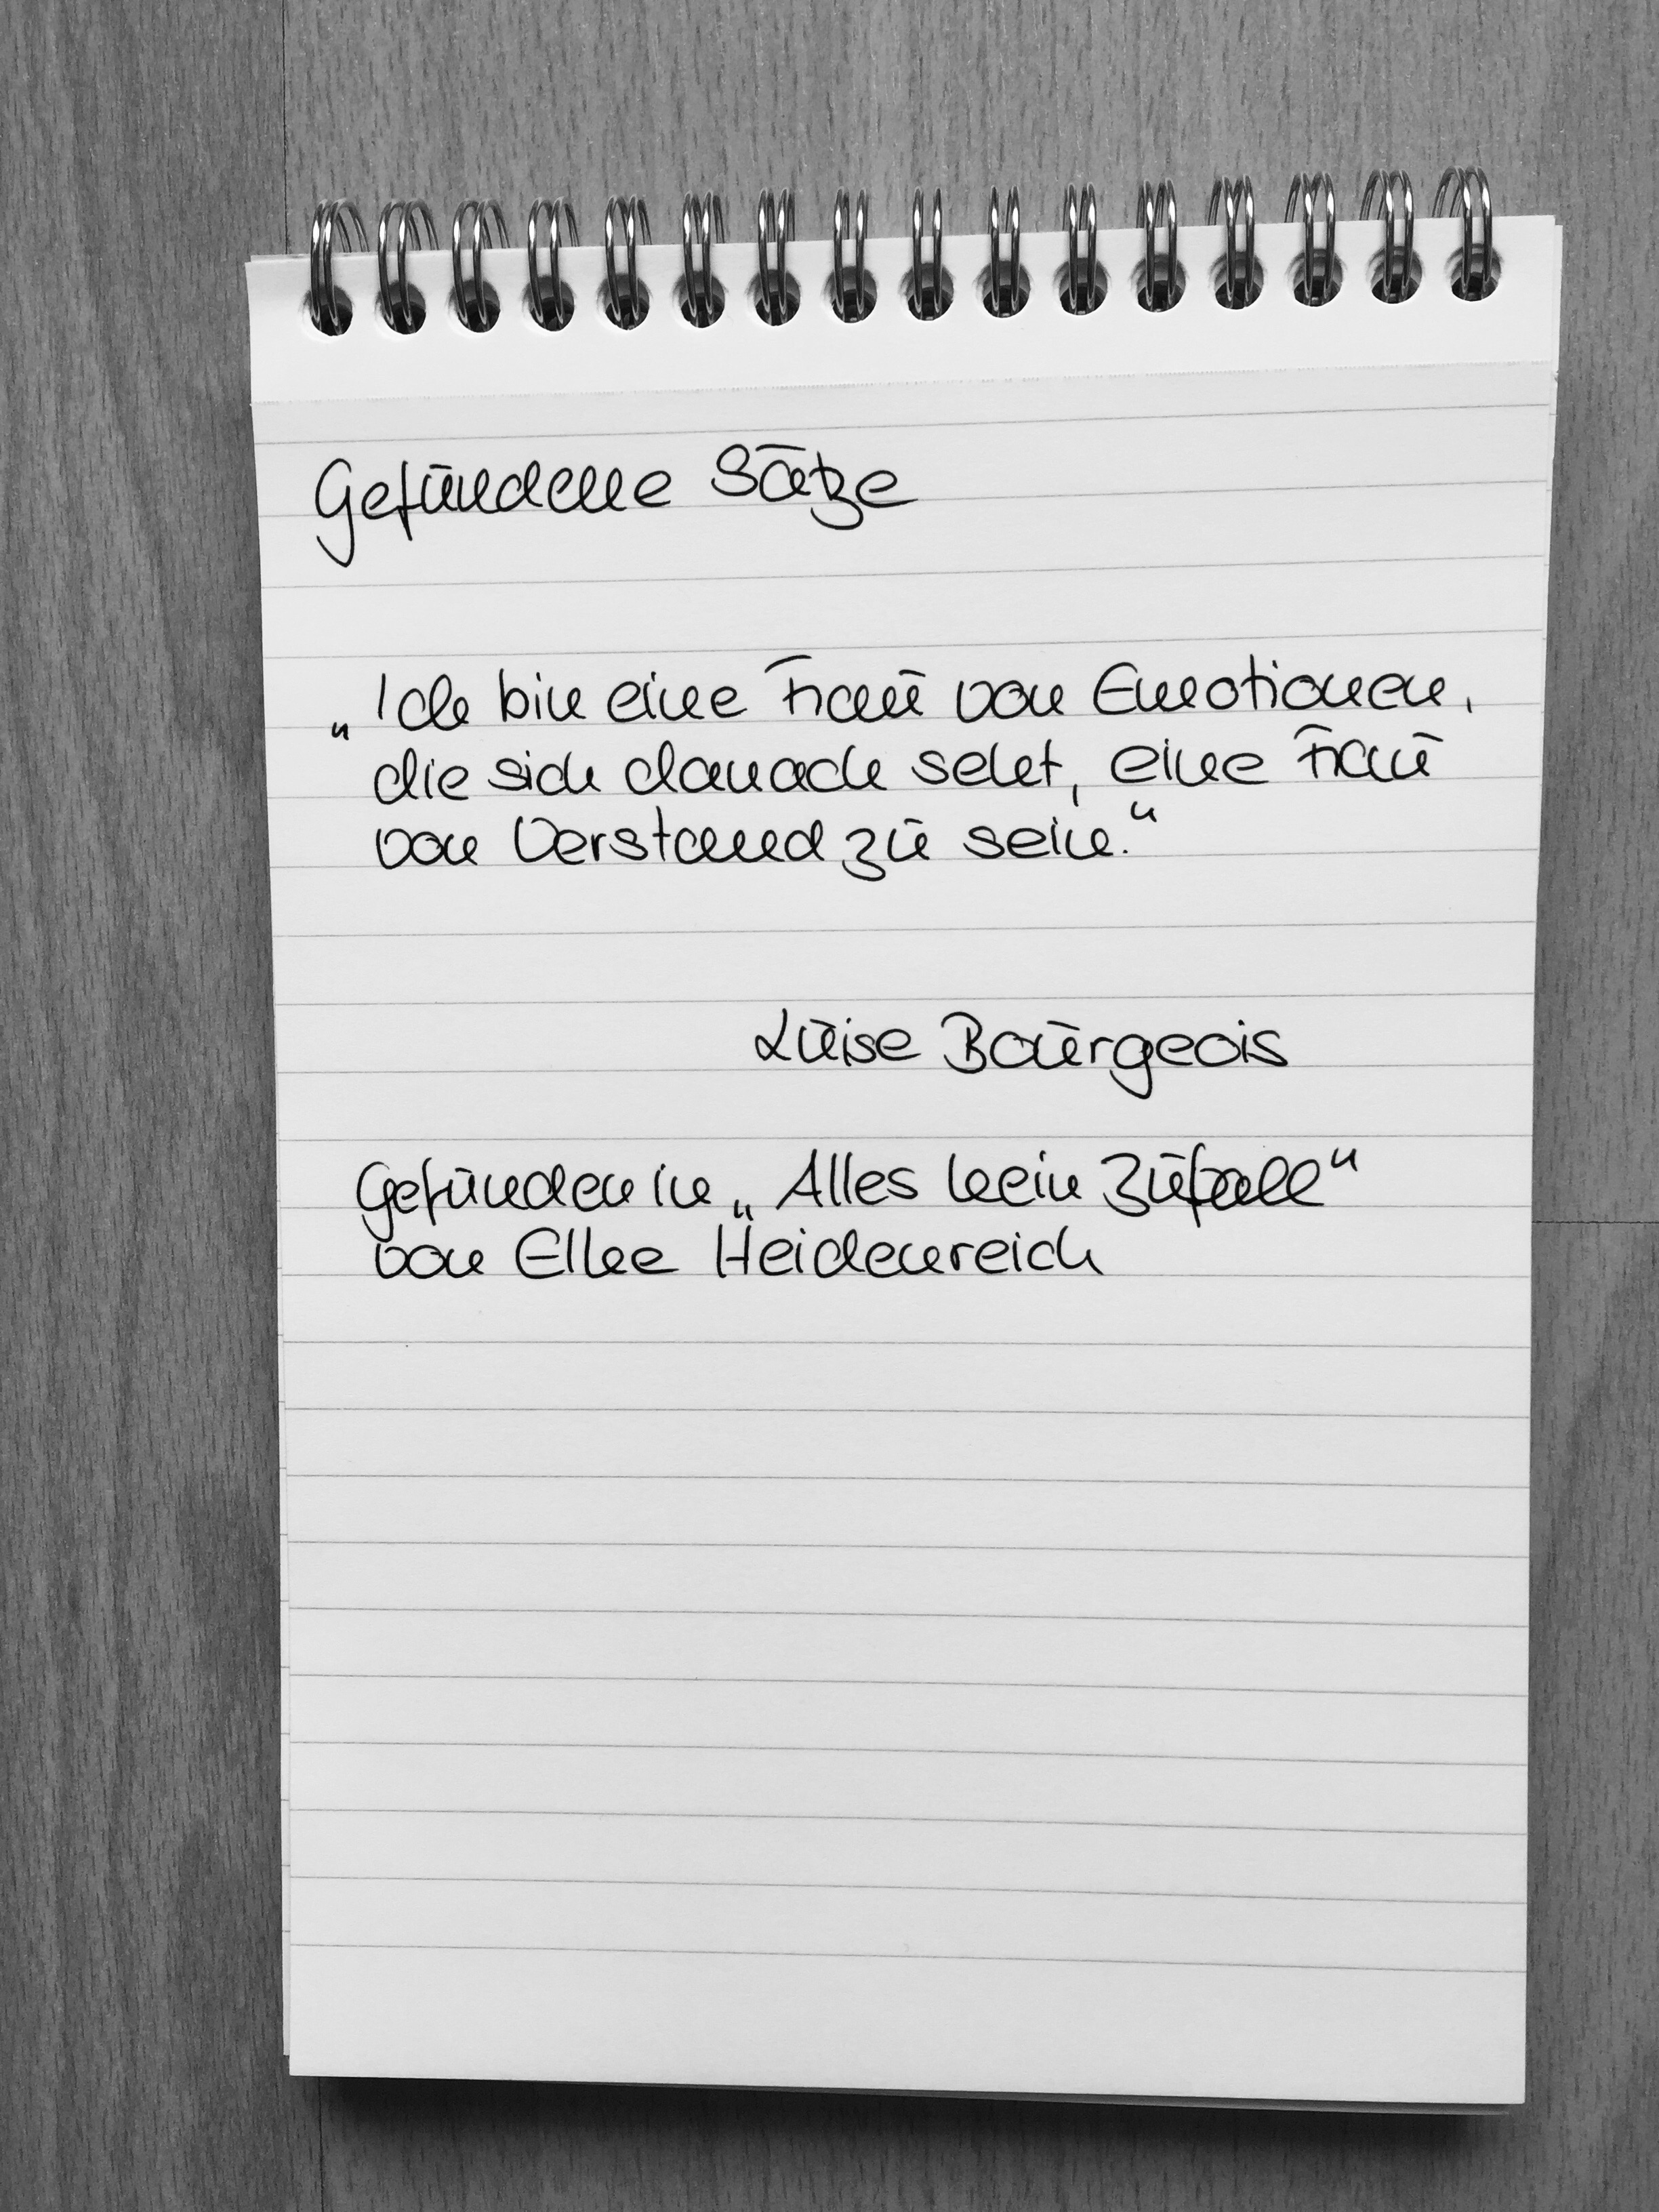 Gefundene Sätze
„Ich bin eine Frau von Emotionen,
die sich danach sehnt, eine Frau
von Verstand zu sein.“
Luise Bourgeois
Gefunden in „Alles kein Zufall“
von Elke Heidenreich